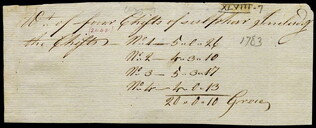 XLVIII-7
Wt. of four Chests of sulphur Including
the Chests — No. 1 — 5 - 0 - 26
1783
No. 2 — 4 - 3 - 10
No. 3 — 5 - 3 - 17
No. 4 — 4 - 0 - 13
20 - 0 - 10 Gross